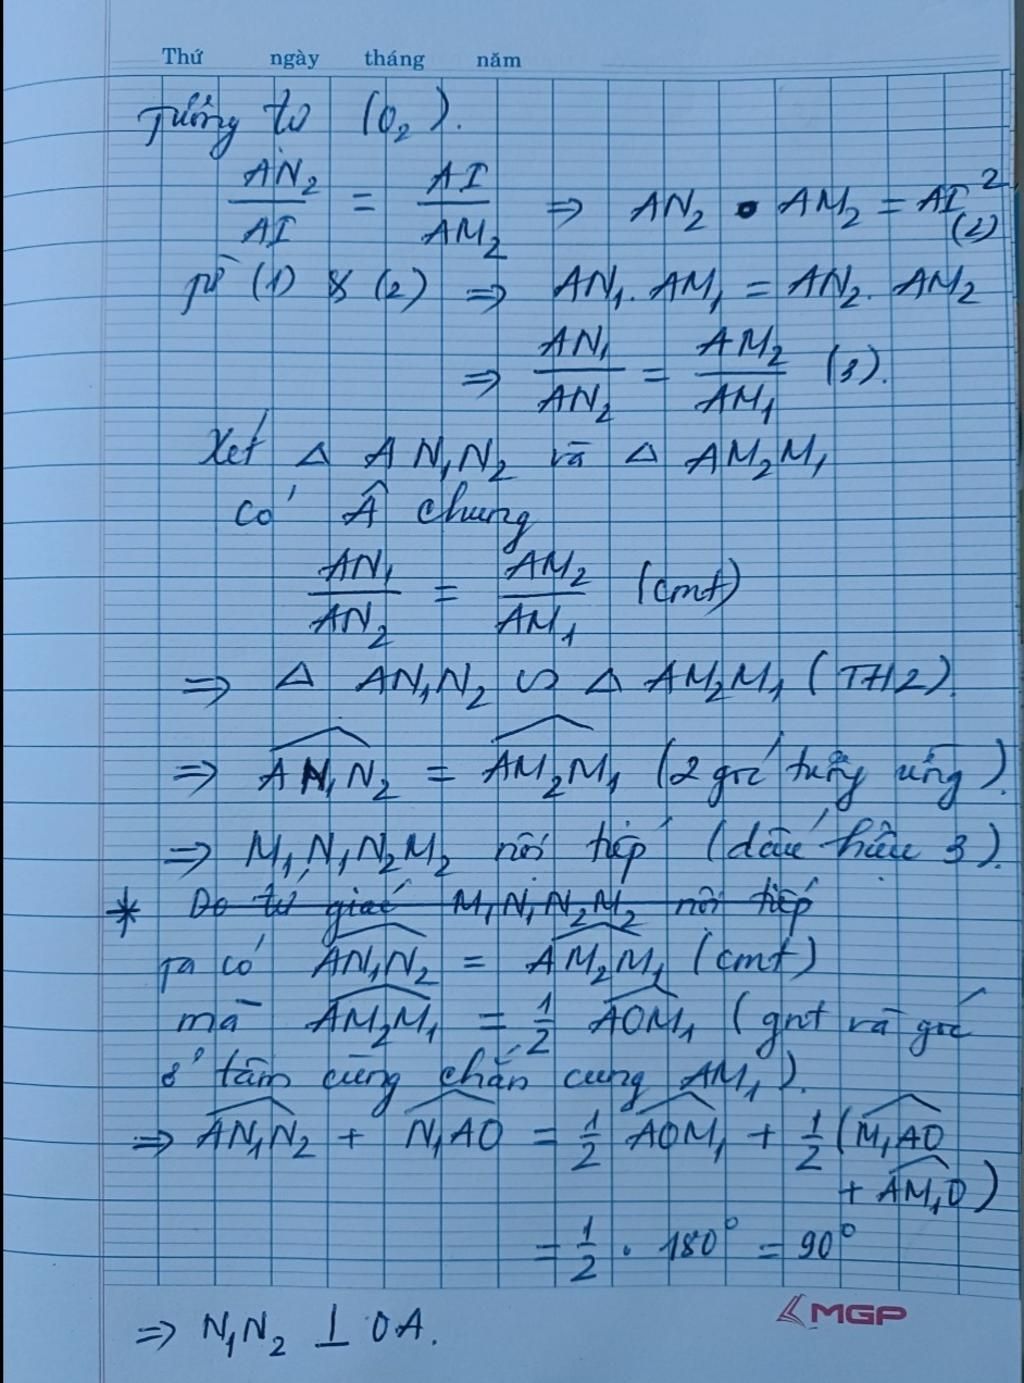 Thứ ngày tháng năm
Tương tự (O₂).
AN₂/AI = AI/AM₂ => AN₂ . AM₂ = AI² (2)
Từ (1) & (2) => AN₁. AM₁ = AN₂. AM₂
=> AN₁/AN₂ = AM₂/AM₁ (3).
Xét Δ AN₁N₂ và Δ AM₂M₁
có Â chung
AN₁/AN₂ = AM₂/AM₁ (cmt)
=> Δ AN₁N₂ ∽ Δ AM₂M₁ (TH2).
=> \widehat{AN₁N₂} = \widehat{AM₂M₁} (2 góc tương ứng).
=> M₁N₁N₂M₂ nội tiếp (dấu hiệu 3).
* Do tứ giác M₁N₁N₂M₂ nội tiếp
Ta có \widehat{AN₁N₂} = \widehat{AM₂M₁} (cmt)
mà \widehat{AM₂M₁} = 1/2 \widehat{AOM₁} (gnt và góc
ở tâm cùng chắn cung AM₁).
=> \widehat{AN₁N₂} + \widehat{N₁AO} = 1/2 \widehat{AOM₁} + 1/2 (\widehat{M₁AO}
+ \widehat{AM₁O})
= 1/2 . 180° = 90°
=> N₁N₂ ⊥ OA.
MGP